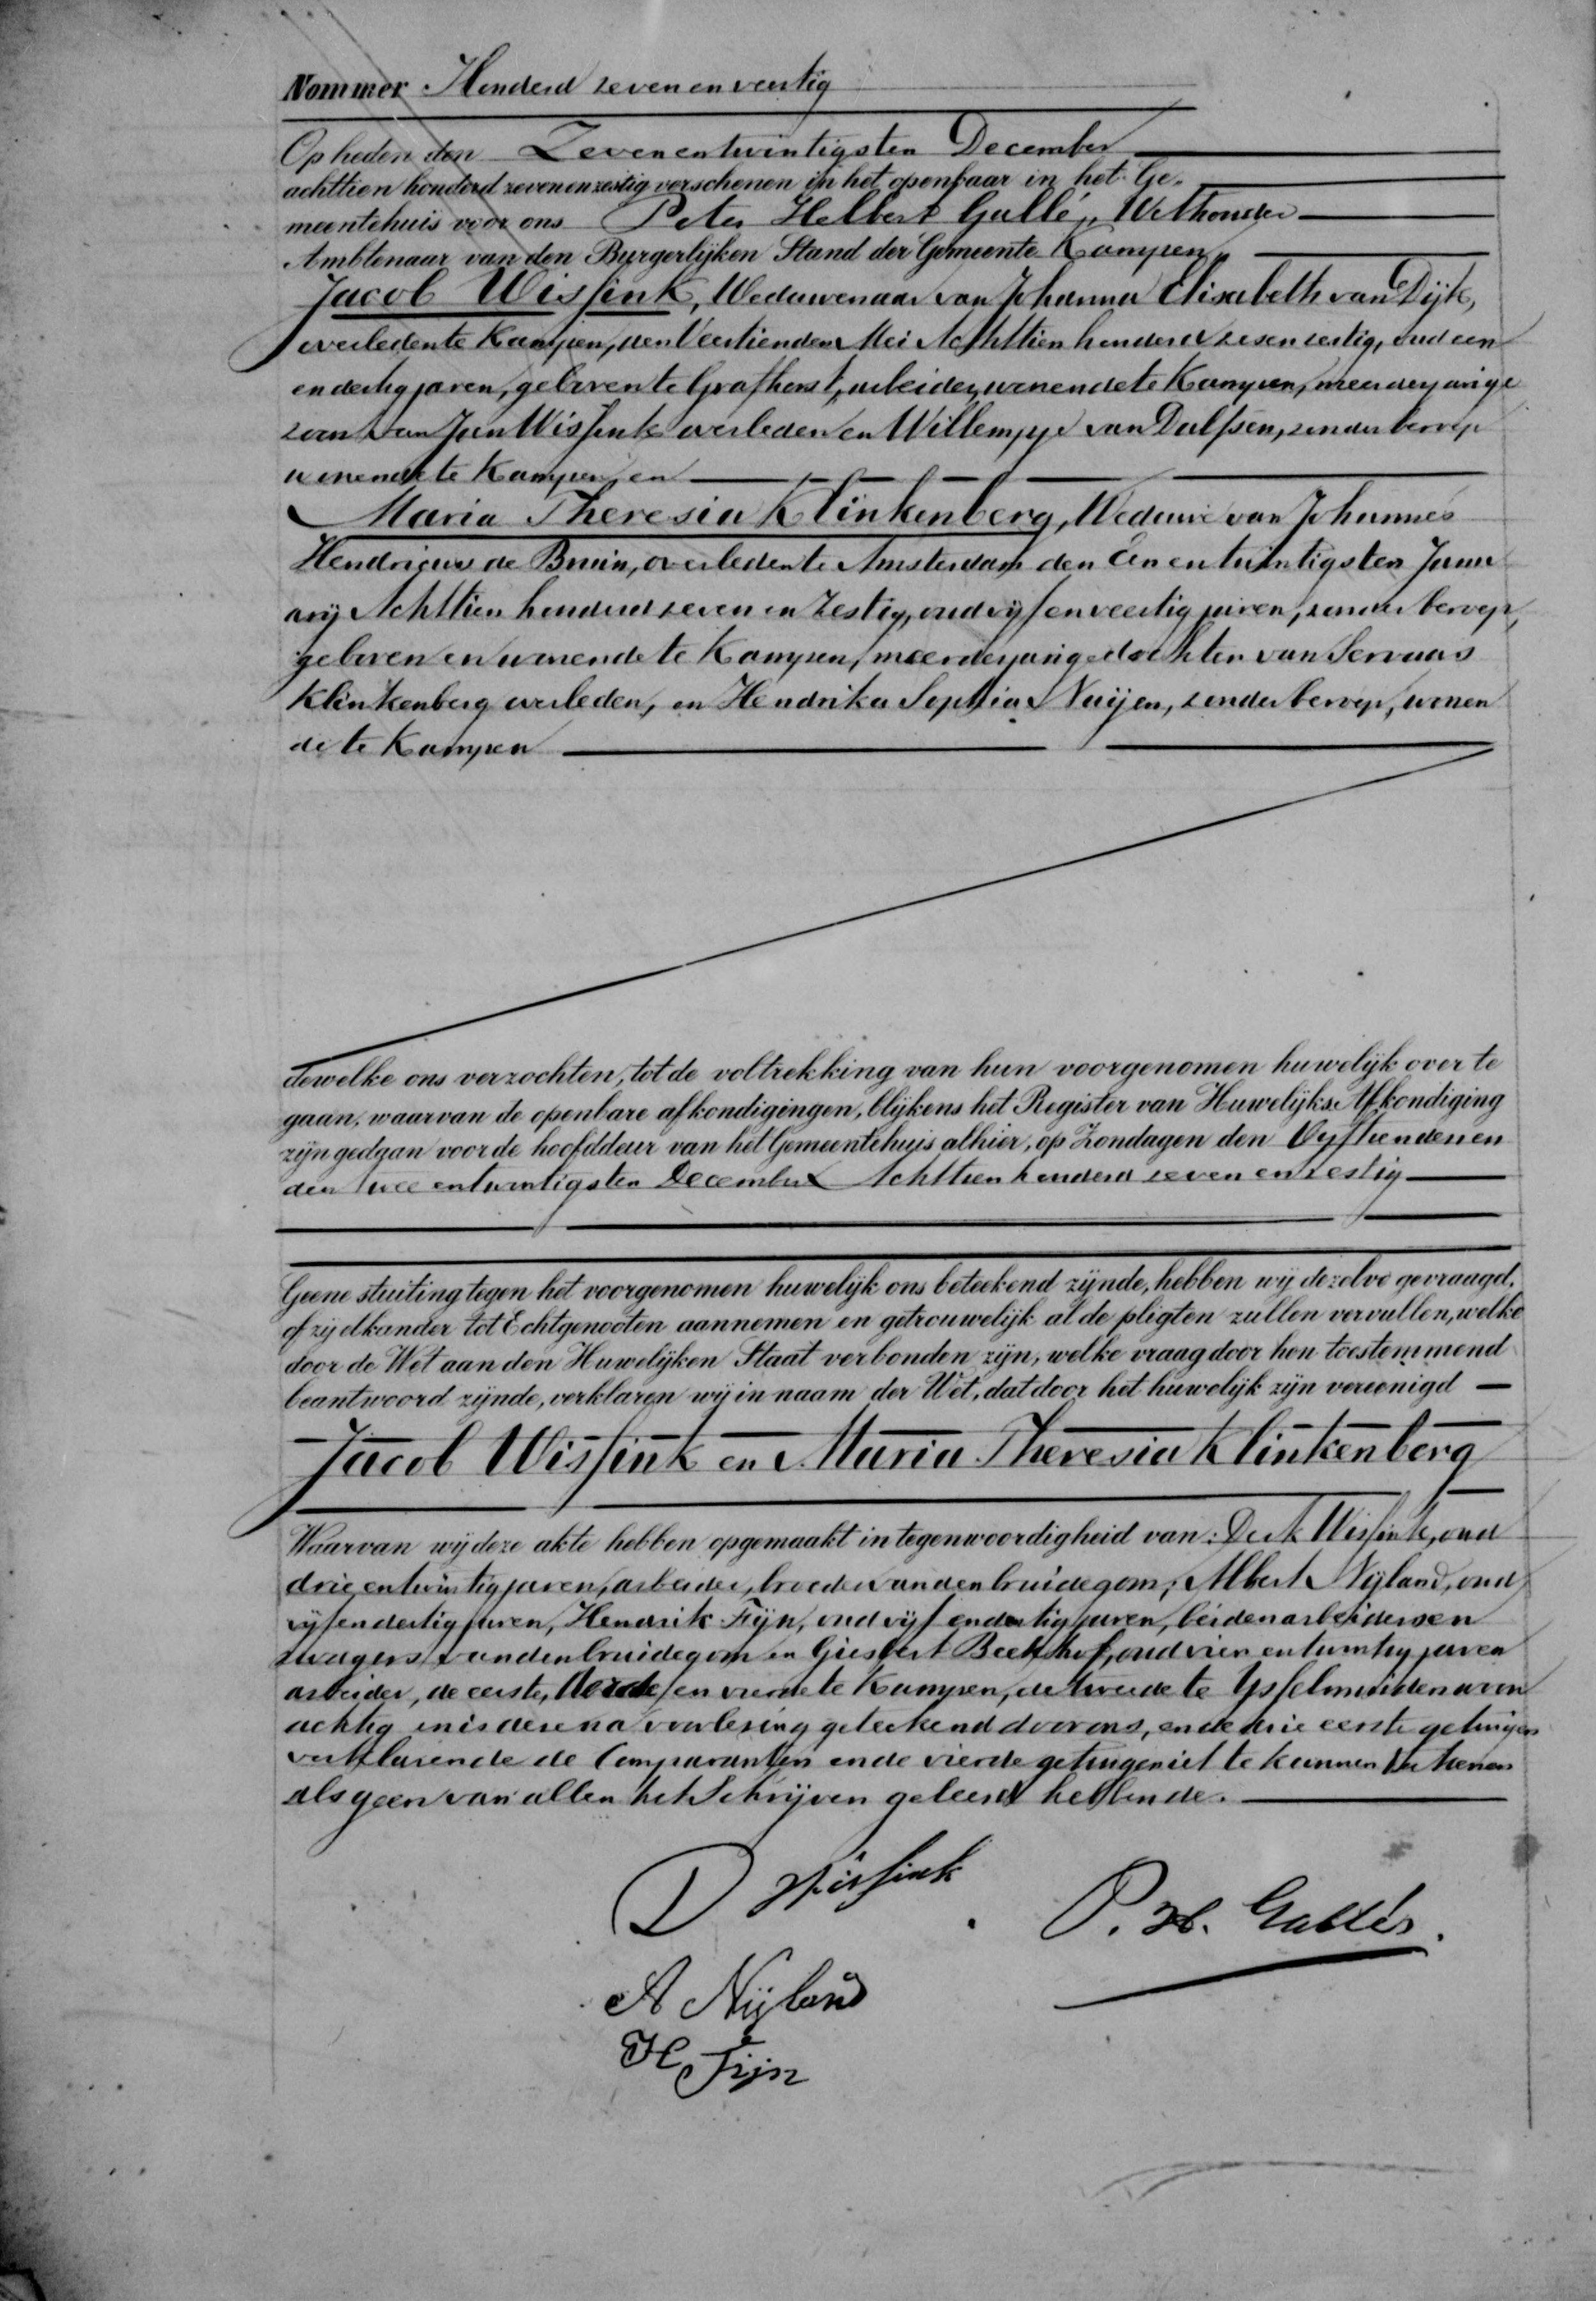 Nommer Honderd zeven en veertig
Op heden den Zevenentwintigsten December
achttien honderd zevenenzestig verschenen in het openbaar in het Ge-
meentehuis voor ons Peter Helbert Gallé, Wethouder
Ambtenaar van den Burgerlijken Stand der Gemeente Kampen,
Jacob Wissink, Weduwenaar van Johanna Elisabeth van Dijk,
overleden te Kampen, den Veertienden Mei Achttien honderd zesenzestig, oud een
en dertig jaren, geboren te Grafhorst, arbeider, wonende te Kampen, meerderjarige
zoon van Jan Wissink overleden en Willempje van Dalfsen, zonder beroep
wonende te Kampen, en
Maria Theresia Klinkenberg, Weduwe van Johannes
Hendricus de Bruin, overleden te Amsterdam den Eenentwintigsten Janu
arij Achttien honderd zeven en Zestig, oud vijf en veertig jaren, zonder beroep,
geboren en wonende te Kampen, meerderjarige dochter van Servaas
Klinkenberg overleden, en Hendrika Sophia Nuijen, zonder beroep, wonen
de te Kampen
dewelke ons verzochten, tot de voltrekking van hun voorgenomen huwelijk over te
gaan, waarvan de openbare afkondigingen, blijkens het Register van Huwelijks Afkondiging
zijn gedaan voor de hoofddeur van het Gemeentehuis alhier, op Zondagen den Vijftienden en
den twee entwintigsten December Achttien honderd zeven en zestig
Geene stuiting tegen het voorgenomen huwelijk ons beteekend zijnde, hebben wij dezelve gevraagd,
of zij elkander tot Echtgenooten aannemen en getrouwelijk al de pligten zullen vervullen, welke
door de Wet aan den Huwelijken Staat verbonden zijn, welke vraag door hen toestemmend
beantwoord zijnde, verklaren wij in naam der Wet, dat door het huwelijk zijn vereenigd
Jacob Wissink en Maria Theresia Klinkenberg
Waarvan wij deze akte hebben opgemaakt in tegenwoordigheid van: Derk Wissink, oud
drie entwintig jaren, arbeider, broeder van den bruidegom, Albert Nijland, oud
vijfendertig jaren, Hendrik Fijn, oud vijf endertig jaren, beiden arbeiders en
zwagers van den bruidegom en Giesbert Beekhof, oud vier entwintig jaren
arbeider, de eerste, derde en vierde te Kampen, de tweede te Ysselmuiden woon
achtig en is deze na voorlezing geteekend door ons, en de drie eerste getuigen
verklarende de Comparanten en de vierde getuige niet te kunnen teekenen
als geen van allen het Schrijven geleerd hebbende.
D Wissink
P. H. Gallé
A Nijland
H Fijn